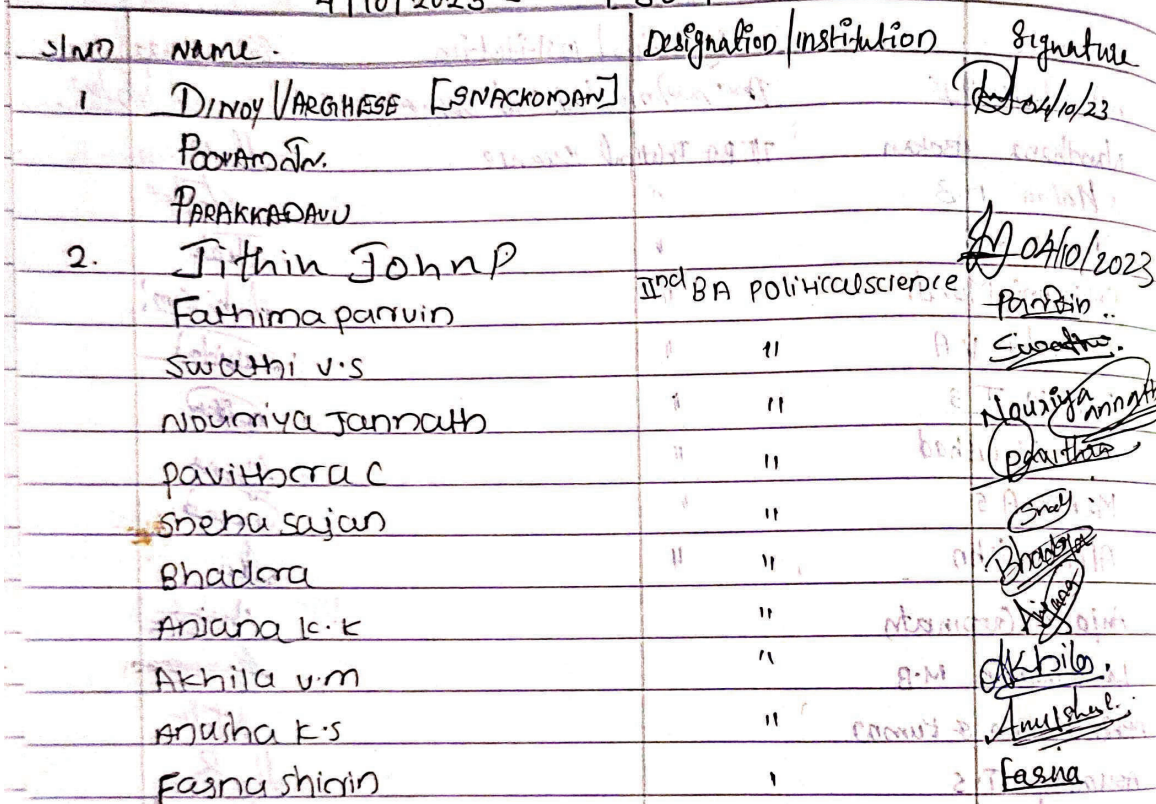 4/10/2023 -
Sl NO Name. Designation/institution Signature
1 DINOY VARGHESE [SNACKOMAN] 04/10/23
POOVAM
PARAKKADAVU
2. Jithin John P 04/10/2023
Fathima parvin IInd BA Political science Parvin..
Swathi v.s " Swathi.
Nourriya Jannath " Nouriya annath
Pavithra C " Pavithra
Sneha sajan "
Bhadra " Bhadra
Anjana K.K " Anjana
Akhila v.m " Akhila.
Anusha K.S " Anusha K.
Fasna shirin ' Fasna